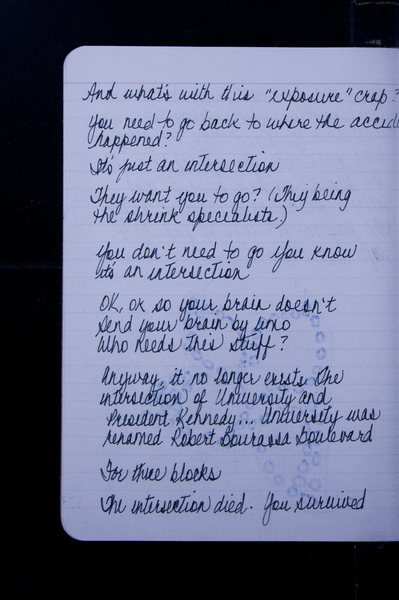 And what's with this "exposure" crap?
You need to go back to where the accide
happened?
It's just an intersection
They want you to go? (They being
the shrink specialists)
You don't need to go you know
it's an intersection
OK, ok so your brain doesn't
send your brain by limo
Who needs this stuff?
Anyway, it no longer exists. The
intersection of University and
President Kennedy... University was
renamed Robert Bourassa Boulevard
For three blocks
The intersection died. You survived